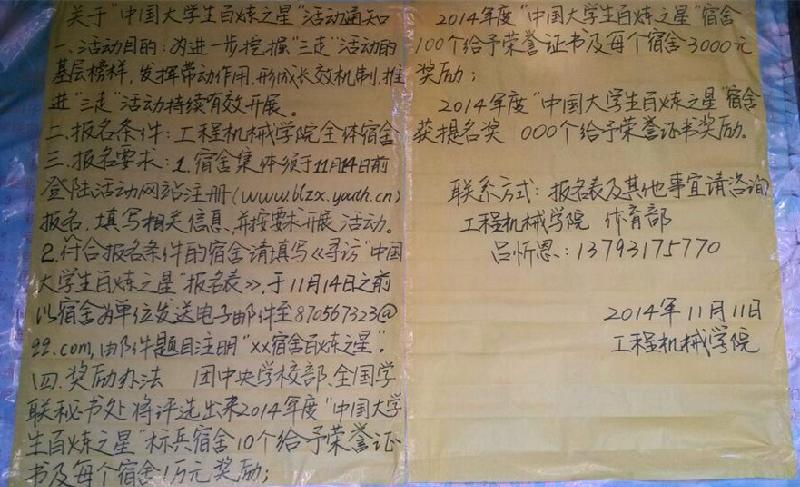 关于“中国大学生百炼之星”活动通知
一、活动目的：为进一步挖掘“三走”活动的
基层榜样，发挥带动作用，形成长效机制，推
进“三走”活动持续有效开展。
二、报名条件：工程机械学院全体宿舍
三、报名要求：1.宿舍集体须于11月14日前
登陆活动网站注册(www.blzx.youth.cn)
报名，填写相关信息，并按要求开展活动。
2.符合报名条件的宿舍请填写《寻访“中国
大学生百炼之星”报名表》，于11月14日之前
以宿舍为单位发送电子邮件至870567323@
qq.com，邮件题目注明“xx宿舍百炼之星”。
四、奖励办法 团中央学校部、全国学
联秘书处将评选出来2014年度“中国大学
生百炼之星”标兵宿舍10个给予荣誉证
书及每个宿舍1万元奖励；
2014年度“中国大学生百炼之星”宿舍
100个给予荣誉证书及每个宿舍3000元
奖励；
2014年度“中国大学生百炼之星”宿舍
获提名奖 000个给予荣誉证书奖励。
联系方式：报名表及其他事宜请咨询
工程机械学院 体育部
吕忻恩：13793175770
2014年11月11日
工程机械学院